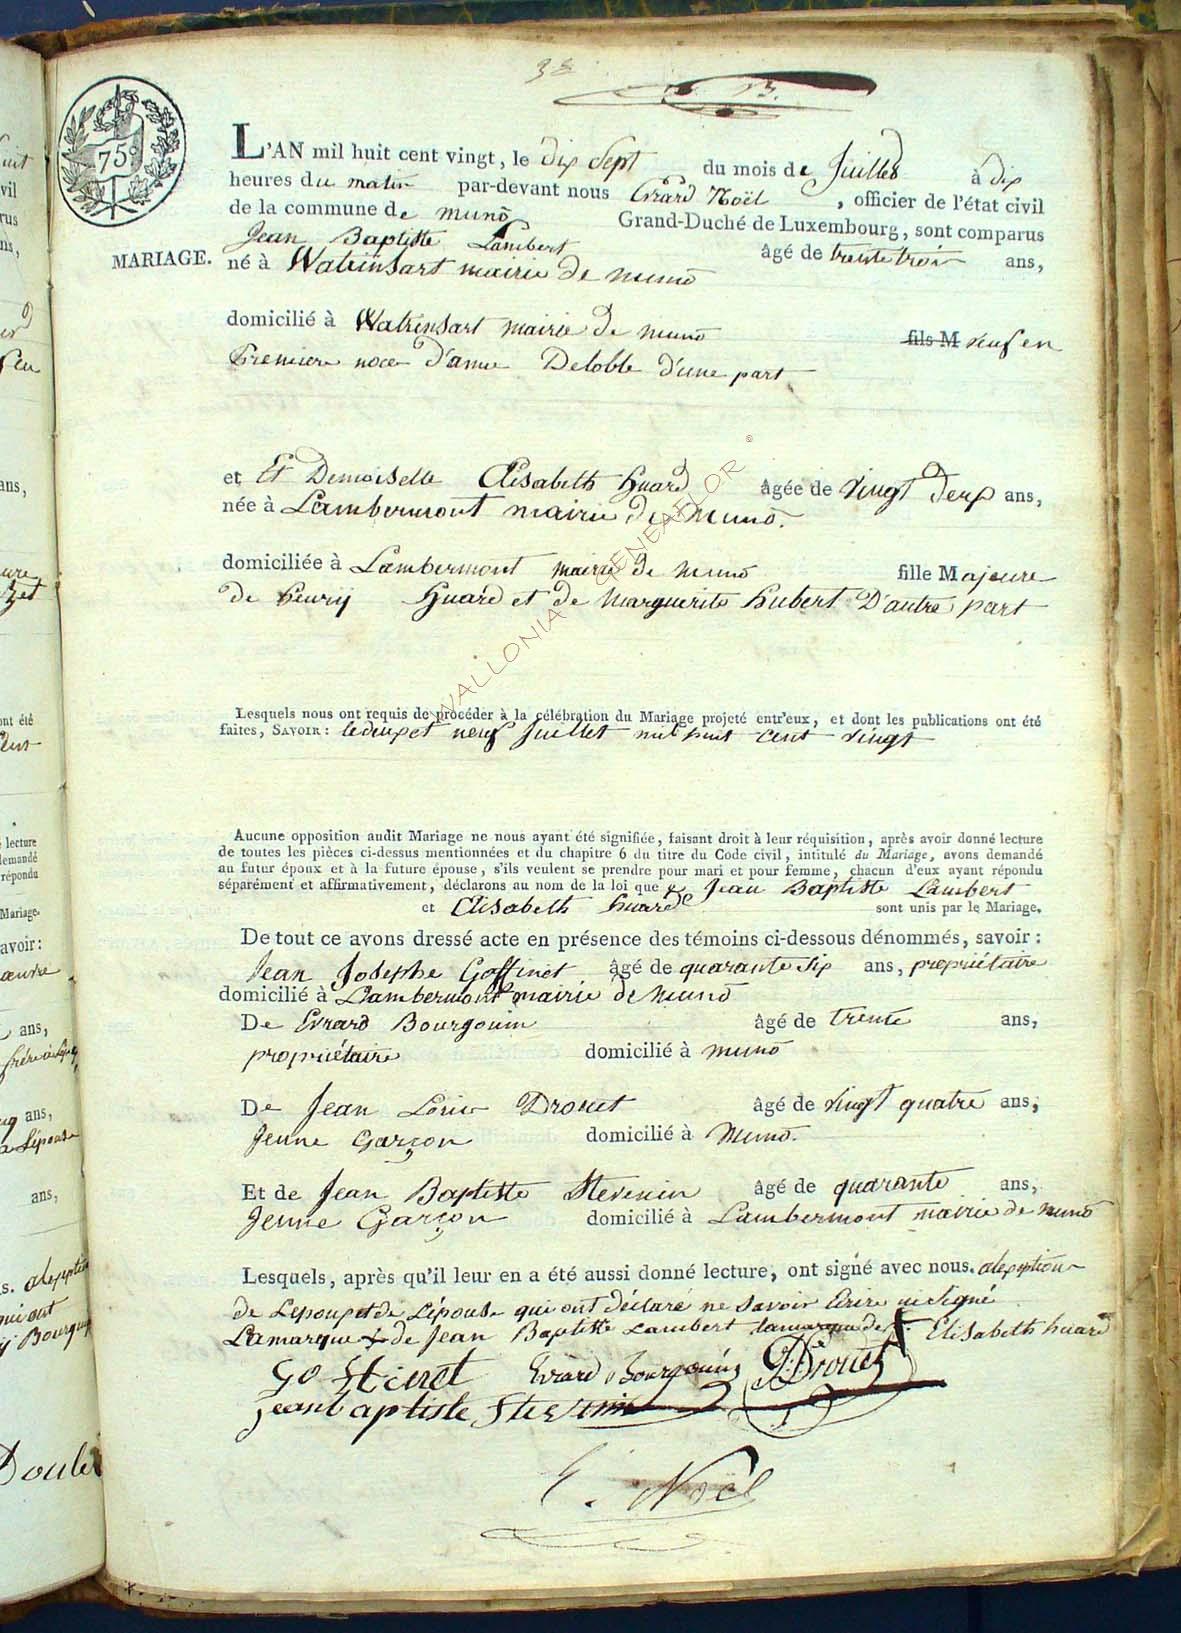 38
13.
75c
MARIAGE.
L'AN mil huit cent vingt, le dix Sept du mois de Juillet à dix
heures du matin par-devant nous Evrard Noël, officier de l'état civil
de la commune de muno Grand-Duché de Luxembourg, sont comparus
Jean Baptiste Lambert âgé de trente trois ans,
né à Watrinsart mairie de muno
domicilié à Watrinsart mairie de muno fils M veuf en
Premiere noce d'anne Deloble d'une part
et Et Demoiselle Elisabeth huard âgée de vingt deux ans,
née à Lambermont mairie de muno.
domiciliée à Lambermont mairie de muno fille Majeure
de henrij huard et de Marguerite hubert D'autre part
Lesquels nous ont requis de procéder à la célébration du Mariage projeté entr'eux, et dont les publications ont été
faites, SAVOIR: le deux et neuf Juillet mil huit cent vingt
Aucune opposition audit Mariage ne nous ayant été signifiée, faisant droit à leur réquisition, après avoir donné lecture
de toutes les pièces ci-dessus mentionnées et du chapitre 6 du titre du Code civil, intitulé du Mariage, avons demandé
au futur époux et à la future épouse, s'ils veulent se prendre pour mari et pour femme, chacun d'eux ayant répondu
séparément et affirmativement, déclarons au nom de la loi que Jean Baptiste Lambert
et Elisabeth huard sont unis par le Mariage.
De tout ce avons dressé acte en présence des témoins ci-dessous dénommés, savoir:
Jean Josephe Goffinet âgé de quarante six ans, propriétaire
domicilié à Lambermont mairie de muno
De Evrard Bourgouin âgé de trente ans,
propriétaire domicilié à muno
De Jean Louis Drouet âgé de vingt quatre ans,
Jeune Garçon domicilié à muno.
Et de Jean Baptiste Stevenin âgé de quarante ans,
Jeune Garçon domicilié à Lambermont mairie de muno
Lesquels, après qu'il leur en a été aussi donné lecture, ont signé avec nous. alexeption
de Lepoux et de Lépouse qui ont déclaré ne savoir Ecrire ni Signé
Lamarque de Jean Baptiste Lambert lamarque de Elisabeth huard
Goffinet Evrard Bourgouin Drouet
jeanbaptiste Stevenin
E. Noël
WALLONIA GENEAFLOR ©